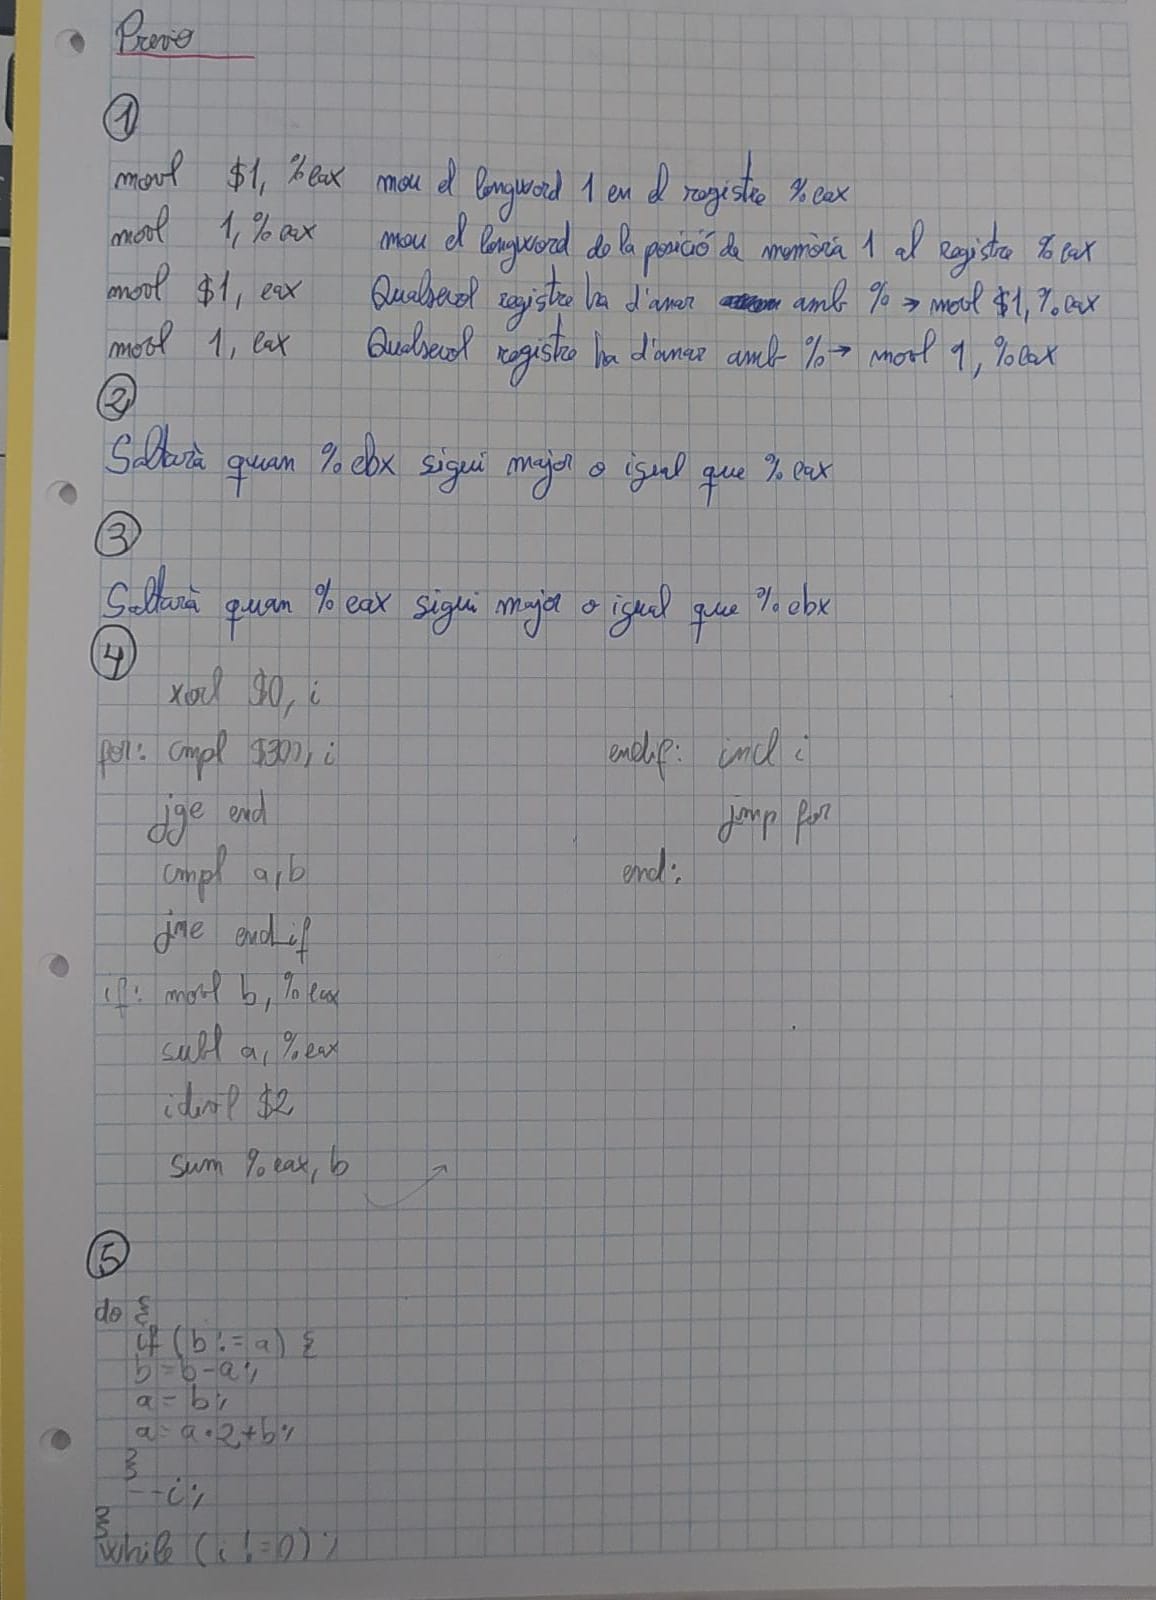 Previo
1
movl $1, %eax mou el longword 1 en el registre %eax
movl 1, %eax mou el longword de la posició de memòria 1 al registre %eax
movl $1, eax Qualsevol registre ha d'anar amb % → movl $1, %eax
movl 1, eax Qualsevol registre ha d'anar amb % → movl 1, %eax
2
Saltarà quan %ebx sigui major o igual que %eax
3
Saltarà quan %eax sigui major o igual que %ebx
4
xorl $0, i
for: cmpl $300, i
jge end
cmpl a, b
jne endif
if: movl b, %eax
subl a, %eax
idivl $2
sum %eax, b
endif: incl i
jmp for
end:
5
do {
if (b != a) {
b = b - a;
a = b;
a = a · 2 + b;
}
--i;
}
while (i != 0);